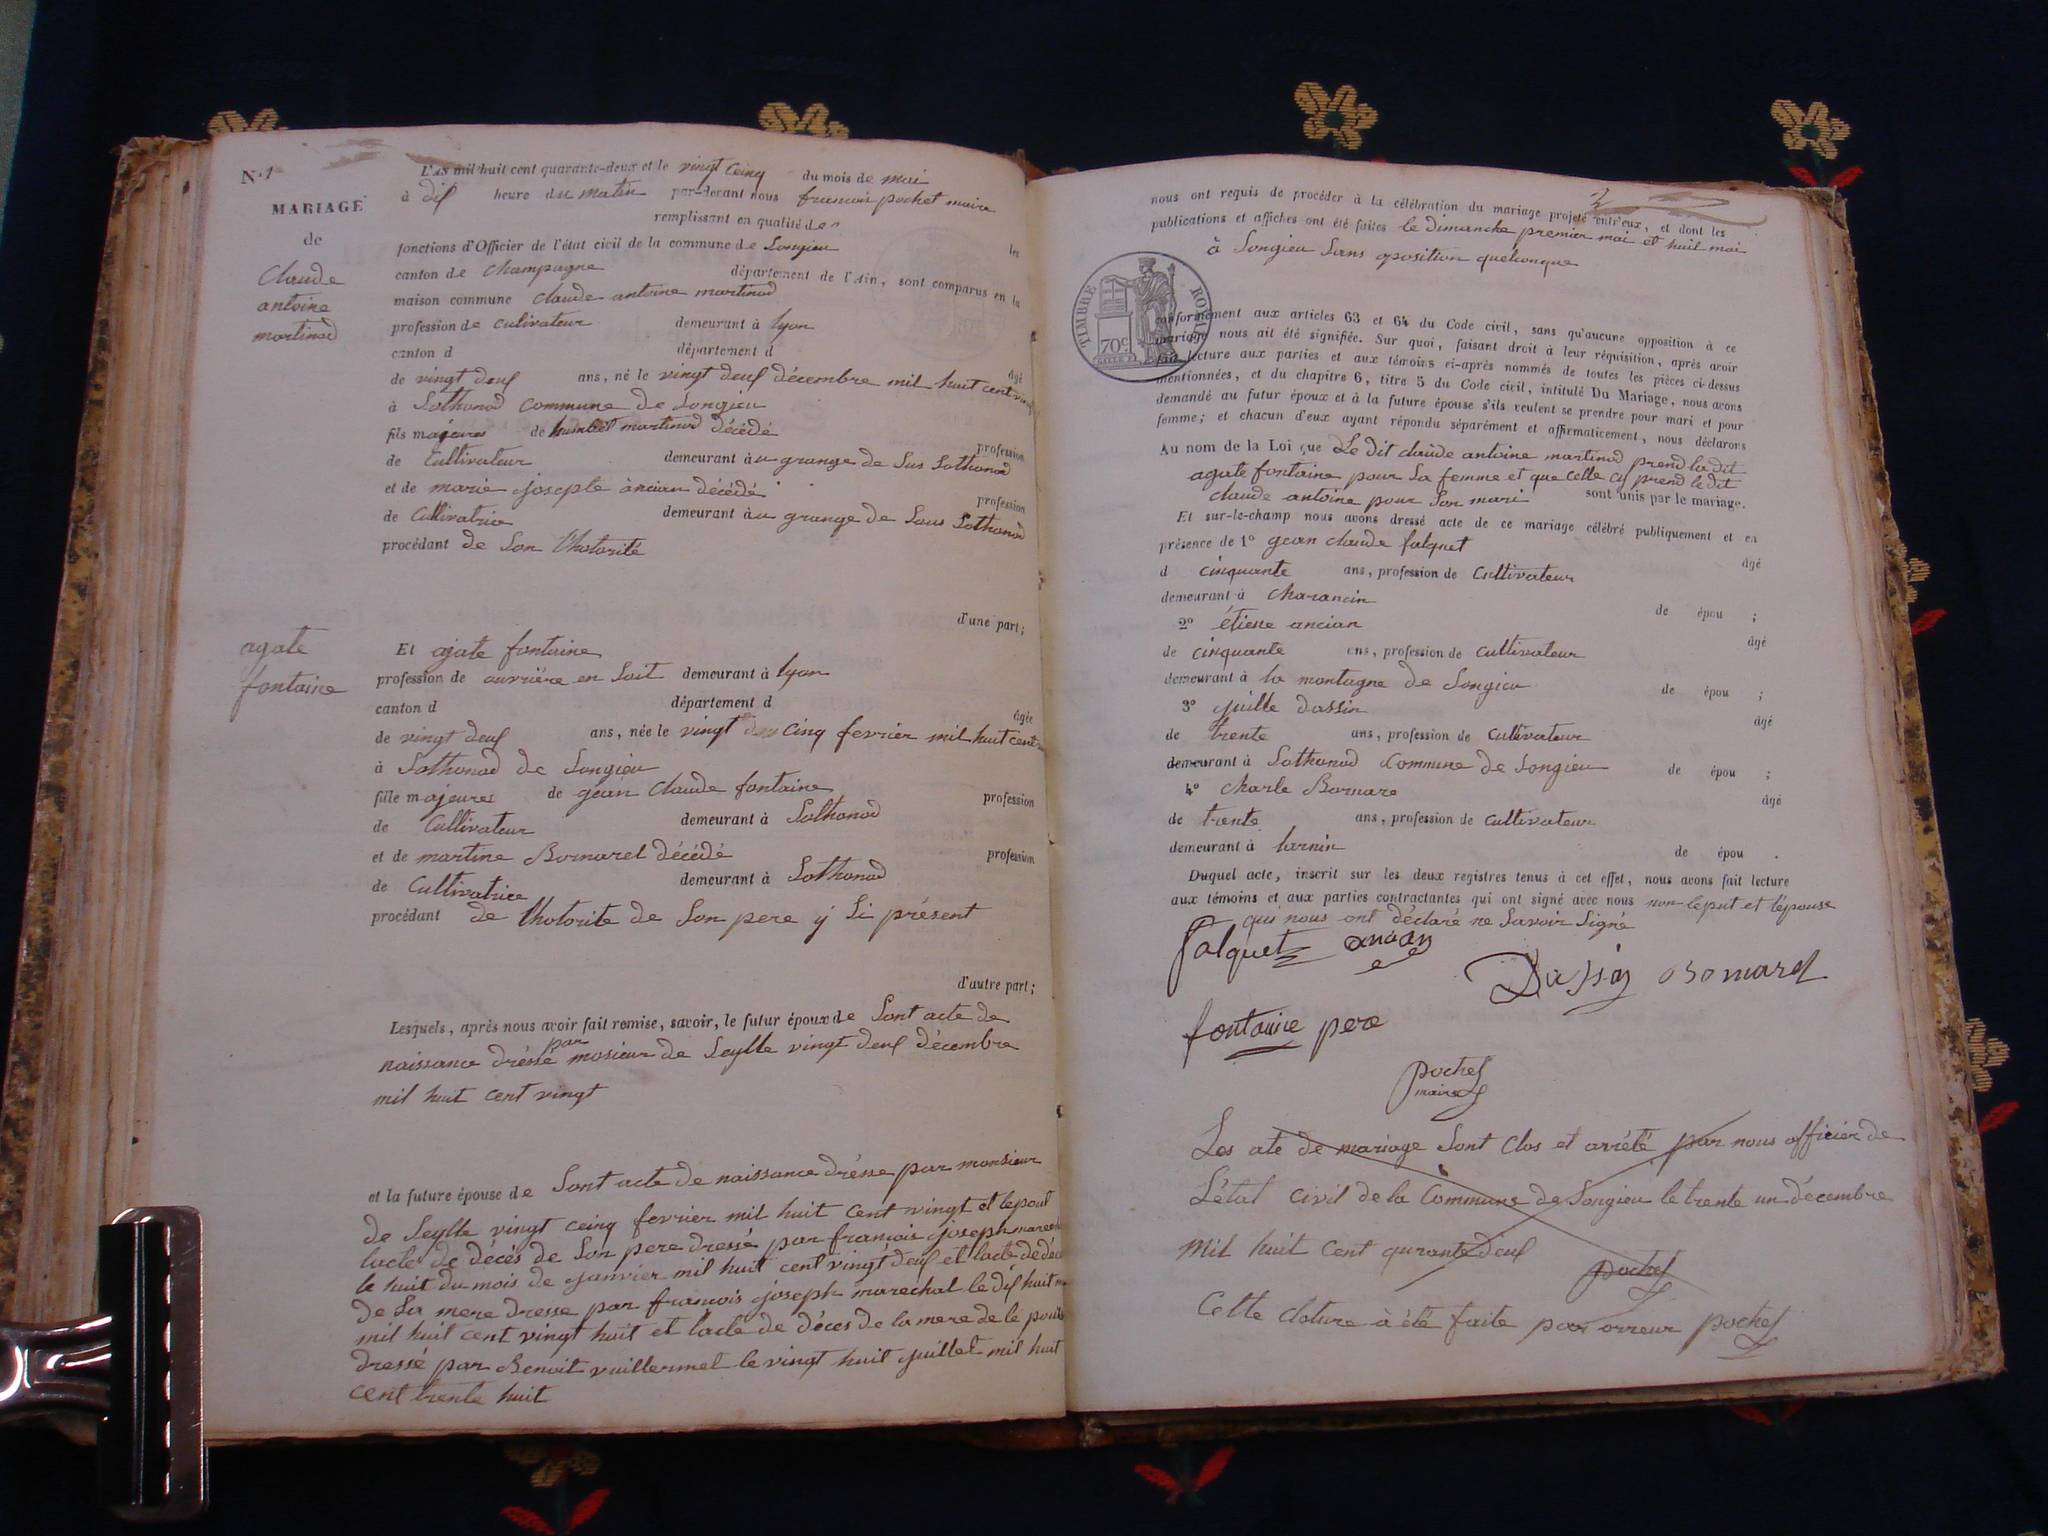 N.1
MARIAGE
de
Claude
antoine
martinod
L'AN mil huit cent quarante-deux et le vingt ceinq du mois de mai
à dix heure du matin par-devant nous francois pochet maire
remplissant en qualité de les
fonctions d'Officier de l'état civil de la commune de Songieu
canton de Champagne département de l'Ain, sont comparus en la
maison commune claude antoine martinod
profession de cutivateur demeurant à lyon
canton d département d
âgé
de vingt deux ans, né le vingt deux décembre mil huit cent vingt
à Sothonod commune de Songieu
fils majeures de humbel martinod décédé
profession
de Cultivateur demeurant à u grange de Sus Sothonod
et de marie josepte ancian décédé
profession
de Cultivatrice demeurant à u grange de Sous Sothonod
procédant de Son lhotorité
d'une part;
agate
fontaine
Et agate fontaine
profession de ouvrière en Soit demeurant à lyon
canton d département d
âgée
de vingt deux ans, née le vingt cinq fevrier mil huit cent
à Sothonod de Songieu
fille majeures de gean Claude fontaine
profession
de Cultivateur demeurant à Sothonod
et de martine Bornarel décédé
profession
de Cultivatrice demeurant à Sothonod
procédant de lhotorite de Son pere y Si présent
d'autre part;
Lesquels, après nous avoir fait remise, savoir, le futur époux de Sont acte de
naissance dréssé par mosieur de Seylle vingt deux décembre
mil huit cent vingt
et la future épouse de Sont acte de naissance drésse par monsieur
de Seylle vingt ceinq fevrier mil huit cent vingt et lepout
lacte de décés de Son pere dressé par françois joseph marechal
le huit du mois de janvier mil huit cent vingt deux et lacte de décé
de Sa mere dresse par francois joseph marechal le dix huit
mil huit cent vingt huit et lacte de déces de la mere de lé pouse
dressé par Benoit vuillermet le vingt huit juillet mil huit
cent trente huit
2
nous ont requis de procéder à la célébration du mariage projeté entr'eux, et dont les
publications et affiches ont été faites le dimanche premier mai et huit mai
à Songieu Sans oposition quelconque
TIMBRE ROYAL
70c
conformément aux articles 63 et 64 du Code civil, sans qu'aucune opposition à ce
mariage nous ait été signifiée. Sur quoi, faisant droit à leur réquisition, après avoir
fait lecture aux parties et aux témoins ci-après nommés de toutes les pièces ci-dessus
mentionnées, et du chapitre 6, titre 5 du Code civil, intitulé Du Mariage, nous avons
demandé au futur époux et à la future épouse s'ils veulent se prendre pour mari et pour
femme; et chacun d'eux ayant répondu séparément et affirmativement, nous déclarons
Au nom de la Loi que Le dit claude antoine martinod prend la dit
agate fontaine pour Sa femme et que celle cy prend le dit
claude antoine pour Son mari sont unis par le mariage.
Et sur-le-champ nous avons dressé acte de ce mariage célébré publiquement et en
présence de 1º gean claude falquet
âgé
d cinquante ans, profession de Cultivateur
demeurant à Charancin
de épou ;
2º étiene ancian
âgé
de cinquante ans, profession de cultivateur
demeurant à la montagne de Songieu
de épou ;
3º juille dassin
âgé
de trente ans, profession de Cultivateur
demeurant à Sothonod Commune de Songieu
de épou ;
4º Charle Bornare
âgé
de trente ans, profession de cultivateur
demeurant à larnin
de épou .
Duquel acte, inscrit sur les deux registres tenus à cet effet, nous avons fait lecture
aux témoins et aux parties contractantes qui ont signé avec nous non lepout et lépouse
qui nous ont déclaré ne Savoir Signé
falquet ancian
Dassin Bornarel
fontaine pere
pochet
maire
Les ate de mariage Sont Clos et arrété par nous officier de
L'état Civil de la Commune de Songieu le trente un décembre
Mil huit Cent qurante deux
pochet
Cette cloture à été faite par orreur pochet